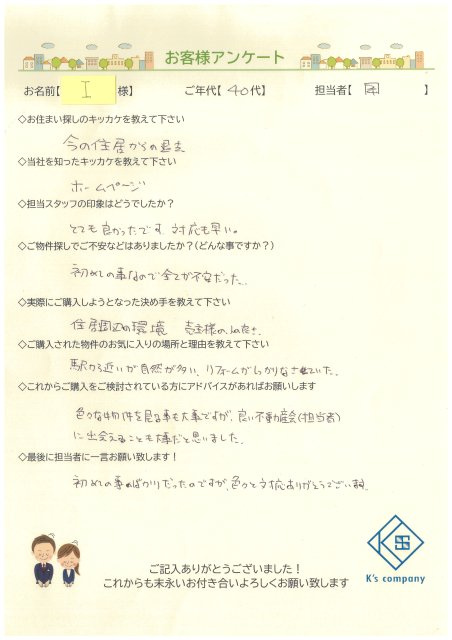 お客様アンケート
お名前【 I 様】 ご年代【 40代】 担当者【 】
◇お住まい探しのキッカケを教えて下さい
今の住居からの退去
◇当社を知ったキッカケを教えて下さい
ホームページ
◇担当スタッフの印象はどうでしたか？
とても良かったです。対応も早い。
◇ご物件探しでご不安などはありましたか？(どんな事ですか？)
初めての事なので全てが不安だった。
◇実際にご購入しようとなった決め手を教えて下さい
住居周辺の環境 売主様の
◇ご購入された物件のお気に入りの場所と理由を教えて下さい
駅から近いが自然が多い、リフォームがしっかりなされていた。
◇これからご購入をご検討されている方にアドバイスがあればお願いします
色々な物件を見る事も大事ですが、良い不動産会(担当者)
に出会えることも大事だと思いました。
◇最後に担当者に一言お願い致します！
初めての事ばかりだったのですが、色々と対応ありがとうございました。
ご記入ありがとうございました！
これからも末永いお付き合いよろしくお願い致します
K's company